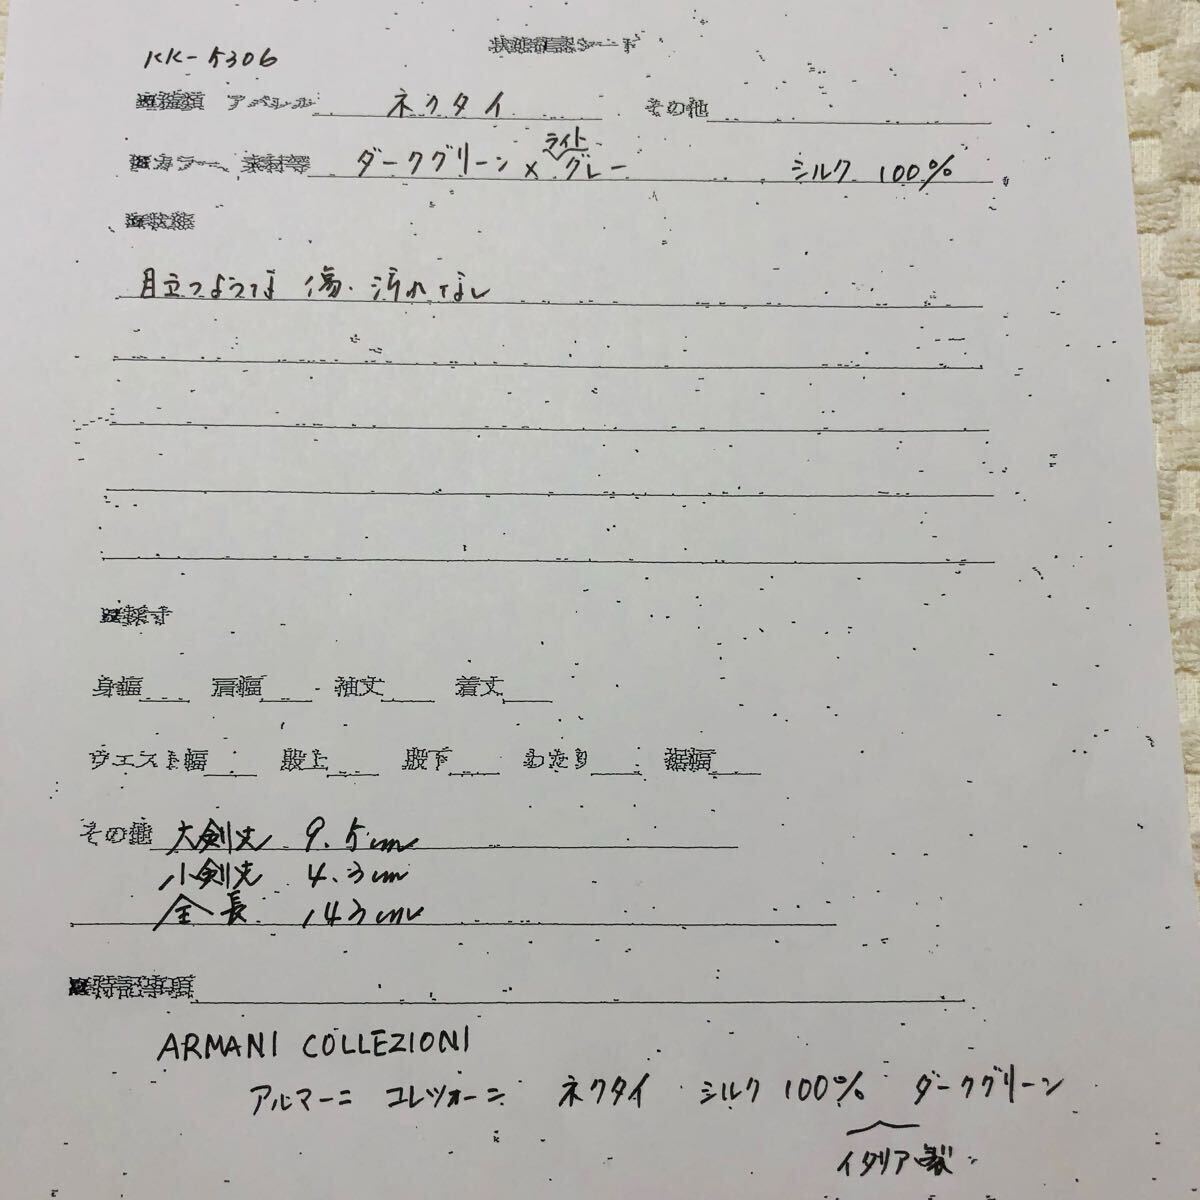 状態確認シート
KK-5306
■種類 アパレル ネクタイ その他
■カラー、素材等 ダークグリーン×ライトグレー シルク 100%
■状態
目立つような 傷、汚れなし
■採寸
身幅 肩幅 袖丈 着丈
ウエスト幅 股上 股下 わたり 裾幅
その他 大剣先 9.5cm
小剣先 4.3cm
全長 143cm
■特記事項
ARMANI COLLEZIONI
アルマーニ コレツォーニ ネクタイ シルク 100% ダークグリーン
イタリア製